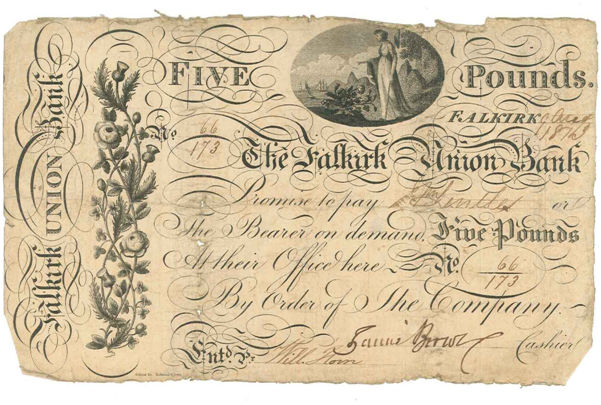 Falkirk UNION Bank
FIVE Pounds.
FALKIRK
No 66/173
The Falkirk Union Bank
Promise to pay or
The Bearer on demand, Five Pounds
At their Office here No. 66/173
By Order of The Company.
Entd. Pr. Cashier